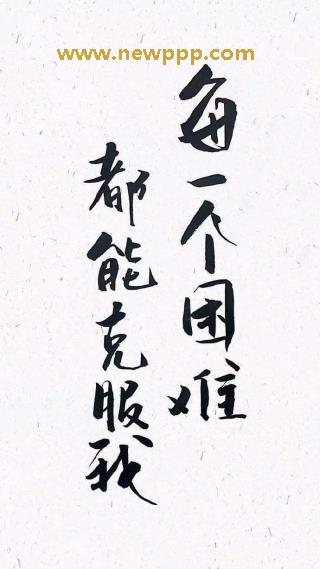 www.newppp.com
每一个困难
都能克服我